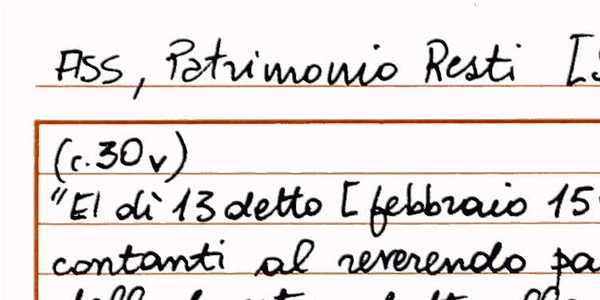 ASS, Patrimonio Resti [
(c.30v)
"El dì 13 detto [febbraio 15
contanti al reverendo pa